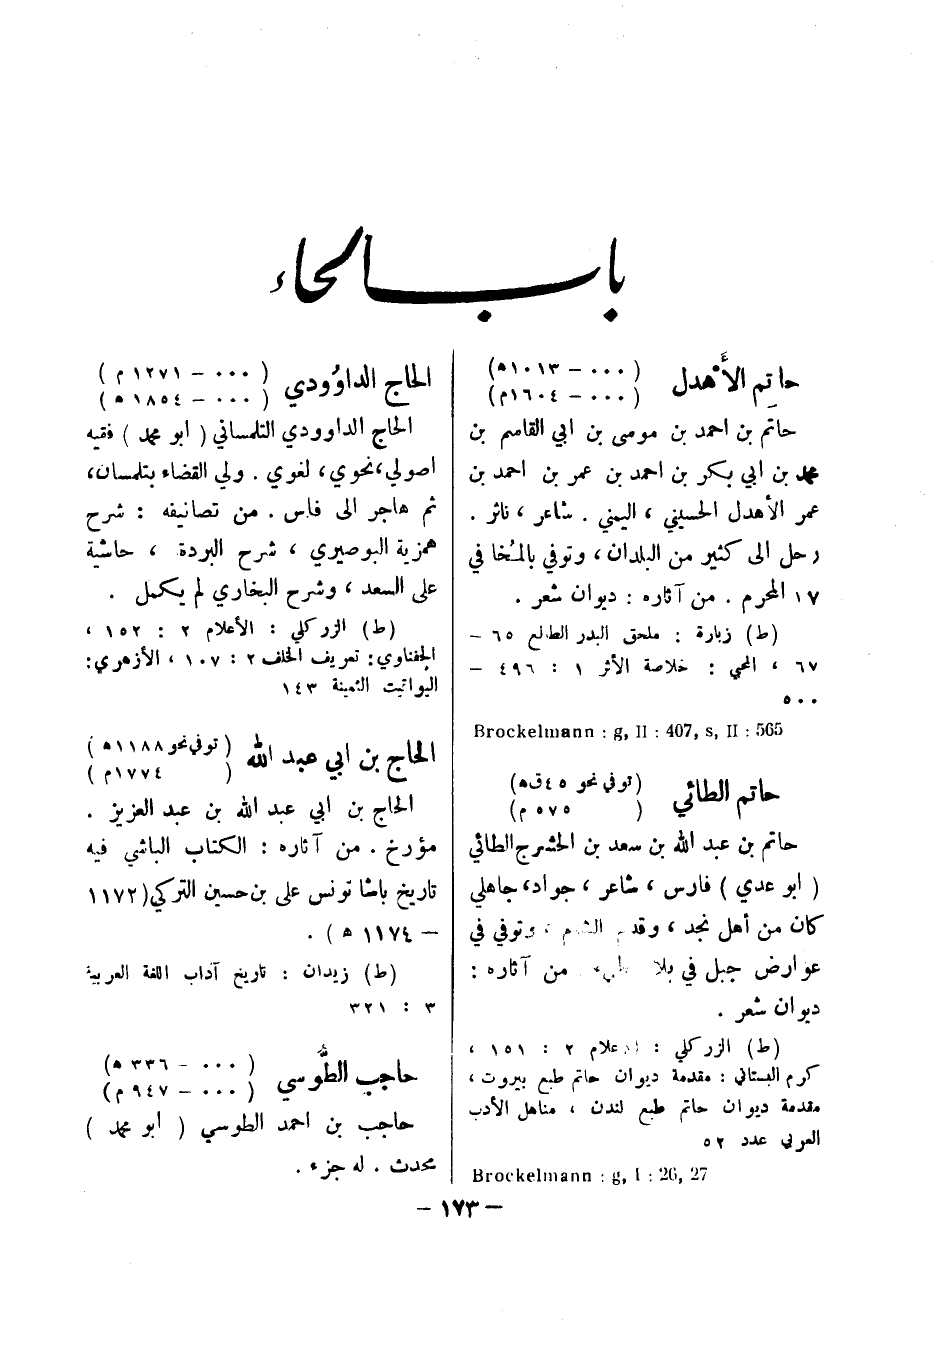 باب الحاء
حاتم الأهدل (٠٠٠ – ١٠١٣ه) (٠٠٠ – ١٦٠٤م)
حاتم بن احمد بن موسى بن ابي القاسم بن
محمد بن ابي بكر بن احمد بن عمر بن احمد بن
عمر الأهدل الحسيني ، اليمني . شاعر ، ناثر .
رحل الى كثير من البلدان ، وتوفي بالمُخا في
١٧ المحرم . من آثاره : ديوان شعر .
(ط) زبارة : ملحق البدر الطالع ٦٥ –
٦٧ ، المحبي : خلاصة الأثر ١ : ٤٩٦ –
٥٠٠
Brockelmann : g, II : 407, s, II : 565
حاتم الطائي (توفي نحو ٤٥ق ه) (٥٧٥ م)
حاتم بن عبد الله بن سعد بن الحشرج الطائي
( ابو عدي ) فارس ، شاعر ، جواد، جاهلي
كان من أهل نجد ، وقدم الشام ، وتوفي في
عوارض جبل في بلاد طيء . من آثاره :
ديوان شعر .
(ط) الزركلي : الاعلام ٢ : ١٥١ ،
كرم البستاني : مقدمة ديوان حاتم طبع بيروت ،
مقدمة ديوان حاتم طبع لندن ، مناهل الأدب
العربي عدد ٥٢
Brockelmann : g, I : 26, 27
الحاج الداوُودي (٠٠٠ – ١٢٧١ م) (٠٠٠ – ١٨٥٤ ه)
الحاج الداوودي التلمساني ( ابو محمد ) فقيه
اصولي، نحوي، لغوي . ولي القضاء بتلمسان،
ثم هاجر الى فاس . من تصانيفه : شرح
همزية البوصيري ، شرح البردة ، حاشية
على السعد ، وشرح البخاري لم يكمل .
(ط) الزركلي : الأعلام ٢ : ١٥٢ ،
الجفناوي: تعريف الخلف ٢ : ١٠٧ ، الأزهري:
اليواقيت الثمينة ١٤٣
الحاج بن ابي عبد الله (توفي نحو ١١٨٨ه) (١٧٧٤م)
الحاج بن ابي عبد الله بن عبد العزيز .
مؤرخ . من آثاره : الكتاب الباشي فيه
تاريخ باشا تونس علي بن حسين التركي (١١٧٢
– ١١٧٤ ه ) .
(ط) زيدان : تاريخ آداب اللغة العربية
٣ : ٣٢١
حاجب الطُّوسي (٠٠٠ – ٣٣٦ ه) (٠٠٠ – ٩٤٧ م)
حاجب بن احمد الطوسي ( ابو محمد )
محدث . له جزء .
– ١٧٣ –